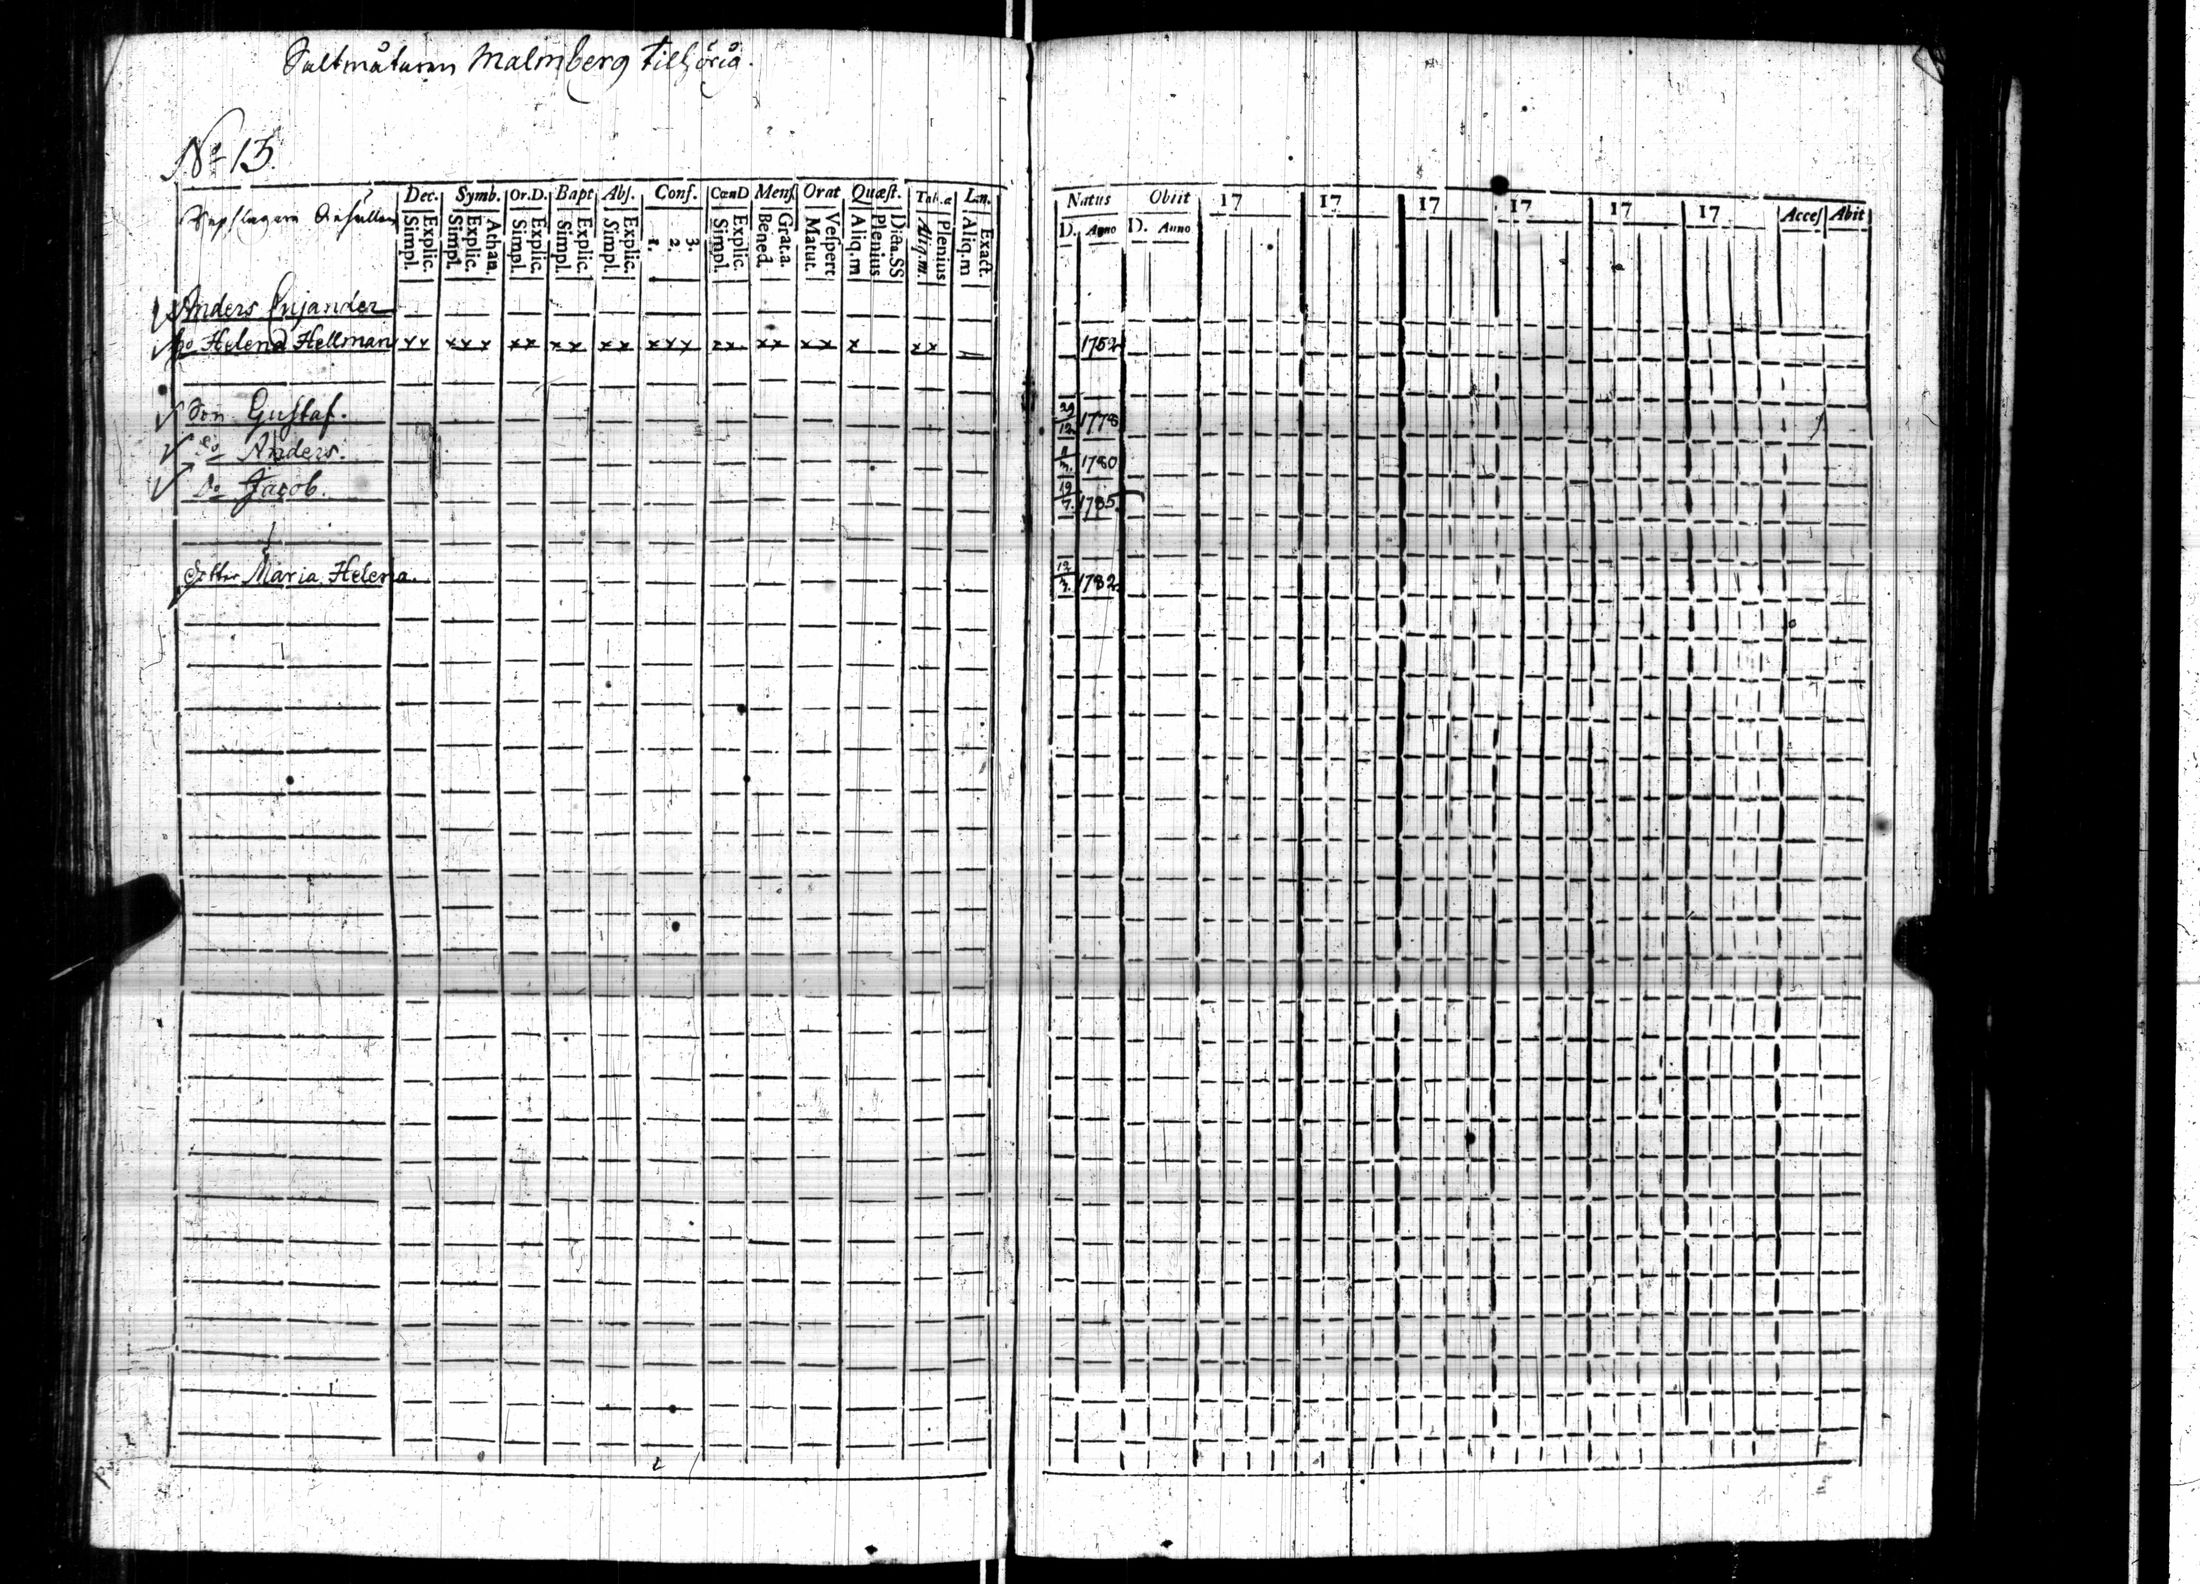 Saltmätaren Malmberg tilhörig.
No 15
Dec. Symb. Or.D. Bapt Abs. Conf. CœnD Mens Orat Quæst. Tab.æ
Explic. Simpl. Athan. Explic. Simpl. Explic. Simpl. Explic. Simpl. Explic. Simpl. 3. 2. 1. Explic. Simpl. Grat.a. Bened. Vespert Matut. Dicta.SS Plenius Aliq.m Plenius Aliq.m. Exact. Aliq.m
Natus Obiit 17 17 17 17 17 17 Acces Abit
D. Anno D. Anno
Anders
Ho Helena Hellman xx xxx xx xx xx xxx xx xx xx x xx 1752
Son Gustaf. 29/12 1778
Do Anders. 1780
Do Jacob. 19/7. 1785
Dotter Maria Helena. 1782